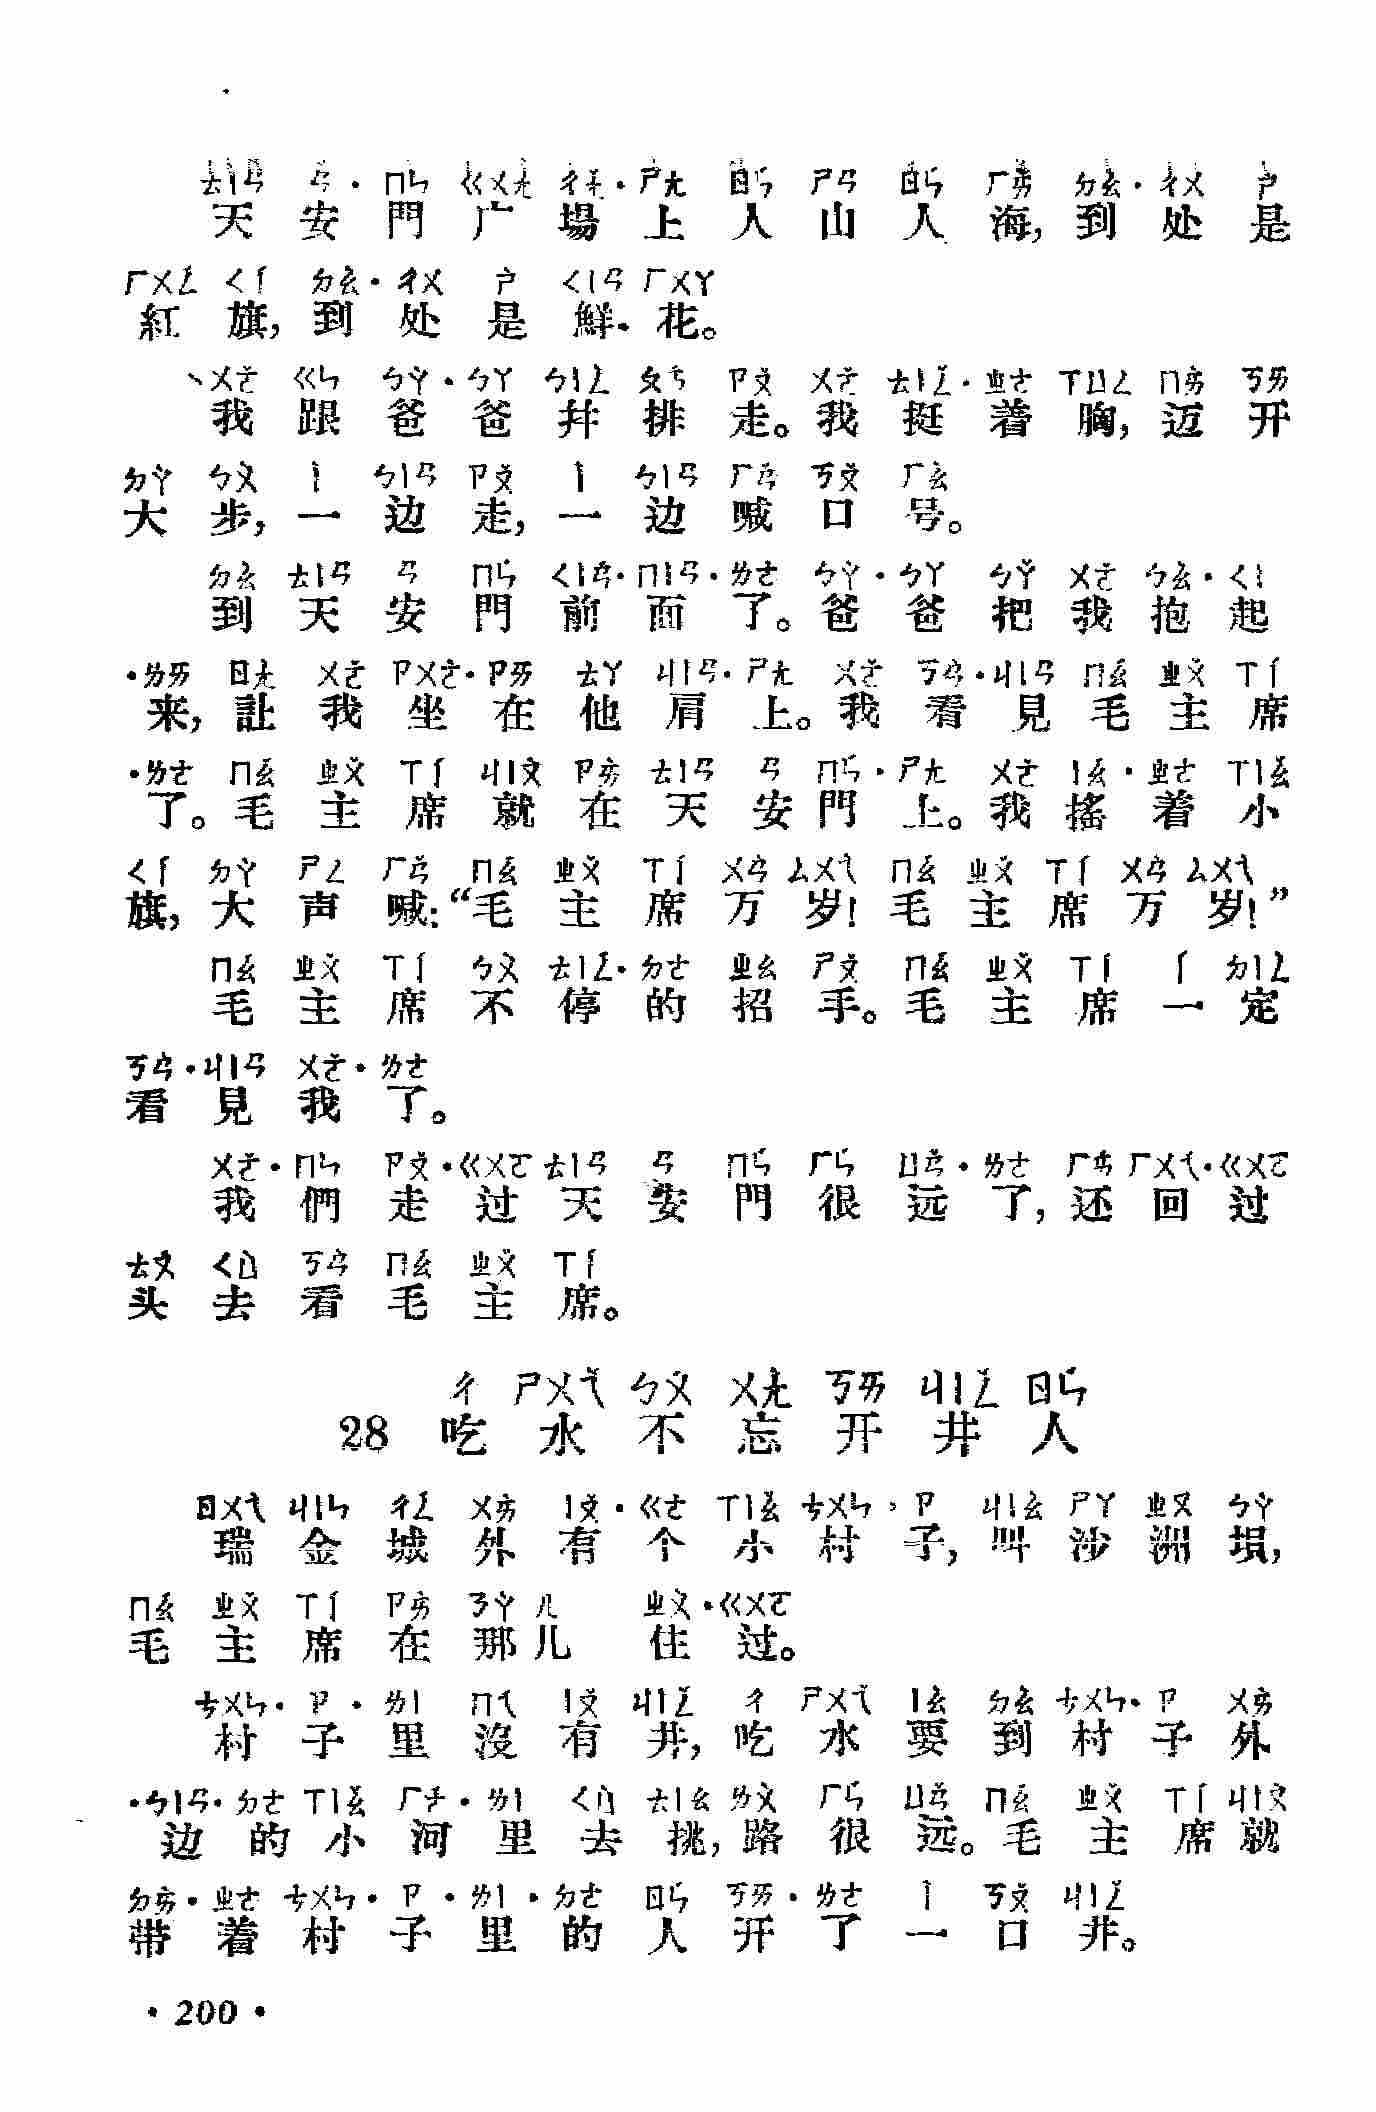 ㄊㄧㄢ ㄢ·ㄇㄣˊ ㄍㄨㄤˇ ㄔㄤˊ·ㄕㄤ ㄖㄣˊ ㄕㄢ ㄖㄣˊ ㄏㄞˇ ㄉㄠˋ·ㄔㄨˋ ㄕˋ
天安門广場上人山人海,到处是
ㄏㄨㄥˊ ㄑㄧˊ ㄉㄠˋ·ㄔㄨˋ ㄕˋ ㄒㄧㄢ ㄏㄨㄚ
紅旗,到处是鮮花。
ㄨㄛˇ ㄍㄣ ㄅㄚˋ·ㄅㄚ ㄅㄧㄥˋ ㄆㄞˊ ㄗㄡˇ ㄨㄛˇ ㄊㄧㄥˇ·ㄓㄜ ㄒㄩㄥ ㄇㄞˋ ㄎㄞ
我跟爸爸幷排走。我挺着胸,迈开
ㄉㄚˋ ㄅㄨˋ ㄧˋ ㄅㄧㄢ ㄗㄡˇ ㄧˋ ㄅㄧㄢ ㄏㄢˇ ㄎㄡˇ ㄏㄠˋ
大步,一边走,一边喊口号。
ㄉㄠˋ ㄊㄧㄢ ㄢ ㄇㄣˊ ㄑㄧㄢˊ·ㄇㄧㄢ·ㄌㄜ ㄅㄚˋ·ㄅㄚ ㄅㄚˇ ㄨㄛˇ ㄅㄠˋ·ㄑㄧ
到天安門前面了。爸爸把我抱起
·ㄌㄞ ㄖㄤˋ ㄨㄛˇ ㄗㄨㄛˋ·ㄗㄞ ㄊㄚ ㄐㄧㄢ·ㄕㄤ ㄨㄛˇ ㄎㄢˋ·ㄐㄧㄢ ㄇㄠˊ ㄓㄨˇ ㄒㄧˊ
来,讓我坐在他肩上。我看見毛主席
·ㄌㄜ ㄇㄠˊ ㄓㄨˇ ㄒㄧˊ ㄐㄧㄡˋ ㄗㄞˋ ㄊㄧㄢ ㄢ ㄇㄣˊ·ㄕㄤ ㄨㄛˇ ㄧㄠˊ·ㄓㄜ ㄒㄧㄠˇ
了。毛主席就在天安門上。我搖着小
ㄑㄧˊ ㄉㄚˋ ㄕㄥ ㄏㄢˇ ㄇㄠˊ ㄓㄨˇ ㄒㄧˊ ㄨㄢˋ ㄙㄨㄟˋ ㄇㄠˊ ㄓㄨˇ ㄒㄧˊ ㄨㄢˋ ㄙㄨㄟˋ
旗,大声喊:“毛主席万岁!毛主席万岁!”
ㄇㄠˊ ㄓㄨˇ ㄒㄧˊ ㄅㄨˋ ㄊㄧㄥˊ·ㄉㄜ ㄓㄠ ㄕㄡˇ ㄇㄠˊ ㄓㄨˇ ㄒㄧˊ ㄧˊ ㄉㄧㄥˋ
毛主席不停的招手。毛主席一定
ㄎㄢˋ·ㄐㄧㄢ ㄨㄛˇ·ㄌㄜ
看見我了。
ㄨㄛˇ·ㄇㄣ ㄗㄡˇ·ㄍㄨㄛ ㄊㄧㄢ ㄢ ㄇㄣˊ ㄏㄣˇ ㄩㄢˇ·ㄌㄜ ㄏㄞˊ ㄏㄨㄟˊ·ㄍㄨㄛ
我們走过天安門很远了,还回过
ㄊㄡˊ ㄑㄩˋ ㄎㄢˋ ㄇㄠˊ ㄓㄨˇ ㄒㄧˊ
头去看毛主席。
ㄔ ㄕㄨㄟˇ ㄅㄨˋ ㄨㄤˋ ㄎㄞ ㄐㄧㄥˇ ㄖㄣˊ
28 吃水不忘开井人
ㄖㄨㄟˋ ㄐㄧㄣ ㄔㄥˊ ㄨㄞˋ ㄧㄡˇ·ㄍㄜ ㄒㄧㄠˇ ㄘㄨㄣ·ㄗ ㄐㄧㄠˋ ㄕㄚ ㄓㄡ ㄅㄚˋ
瑞金城外有个小村子,叫沙洲垻,
ㄇㄠˊ ㄓㄨˇ ㄒㄧˊ ㄗㄞˋ ㄋㄚˋ ㄦ ㄓㄨˋ·ㄍㄨㄛ
毛主席在那儿住过。
ㄘㄨㄣ·ㄗ·ㄌㄧ ㄇㄟˊ ㄧㄡˇ ㄐㄧㄥˇ ㄔ ㄕㄨㄟˇ ㄧㄠˋ ㄉㄠˋ ㄘㄨㄣ·ㄗ ㄨㄞˋ
村子里沒有井,吃水要到村子外
·ㄅㄧㄢ·ㄉㄜ ㄒㄧㄠˇ ㄏㄜˊ·ㄌㄧ ㄑㄩˋ ㄊㄧㄠ ㄌㄨˋ ㄏㄣˇ ㄩㄢˇ ㄇㄠˊ ㄓㄨˇ ㄒㄧˊ ㄐㄧㄡˋ
边的小河里去挑,路很远。毛主席就
ㄉㄞˋ·ㄓㄜ ㄘㄨㄣ·ㄗ·ㄌㄧ·ㄉㄜ ㄖㄣˊ ㄎㄞ·ㄌㄜ ㄧˋ ㄎㄡˇ ㄐㄧㄥˇ
带着村子里的人开了一口井。
·200·